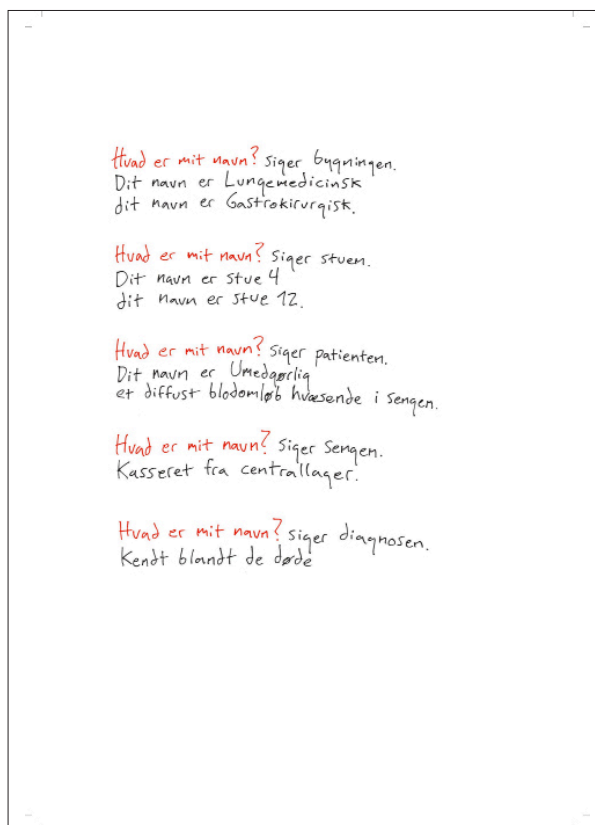 Hvad er mit navn? siger bygningen.
Dit navn er Lungemedicinsk
dit navn er Gastrokirurgisk.
Hvad er mit navn? siger stuen.
Dit navn er stue 4
dit navn er stue 12.
Hvad er mit navn? siger patienten.
Dit navn er Umedgørlig
et diffust blodomløb hvæsende i sengen.
Hvad er mit navn? siger sengen.
Kasseret fra centrallager.
Hvad er mit navn? siger diagnosen.
Kendt blandt de døde